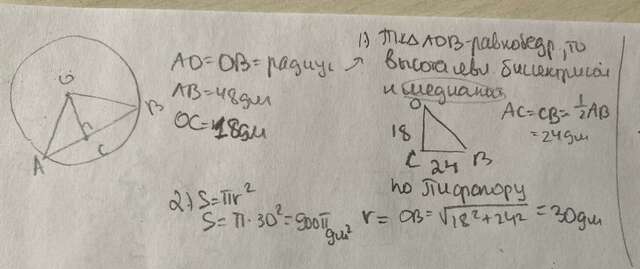 O
B
A
C
AO=OB=радиус
AB=48дм
OC=18дм
1) Т.к ∆ AOB-равнобедр, то
высота явл. биссектрисой
и медианой
O
18
C 24 B
AC=CB=½AB
=24дм
по Пифагору
r = OB=√18²+24² = 30дм
2) S=πr²
S=π·30²=900π дм²